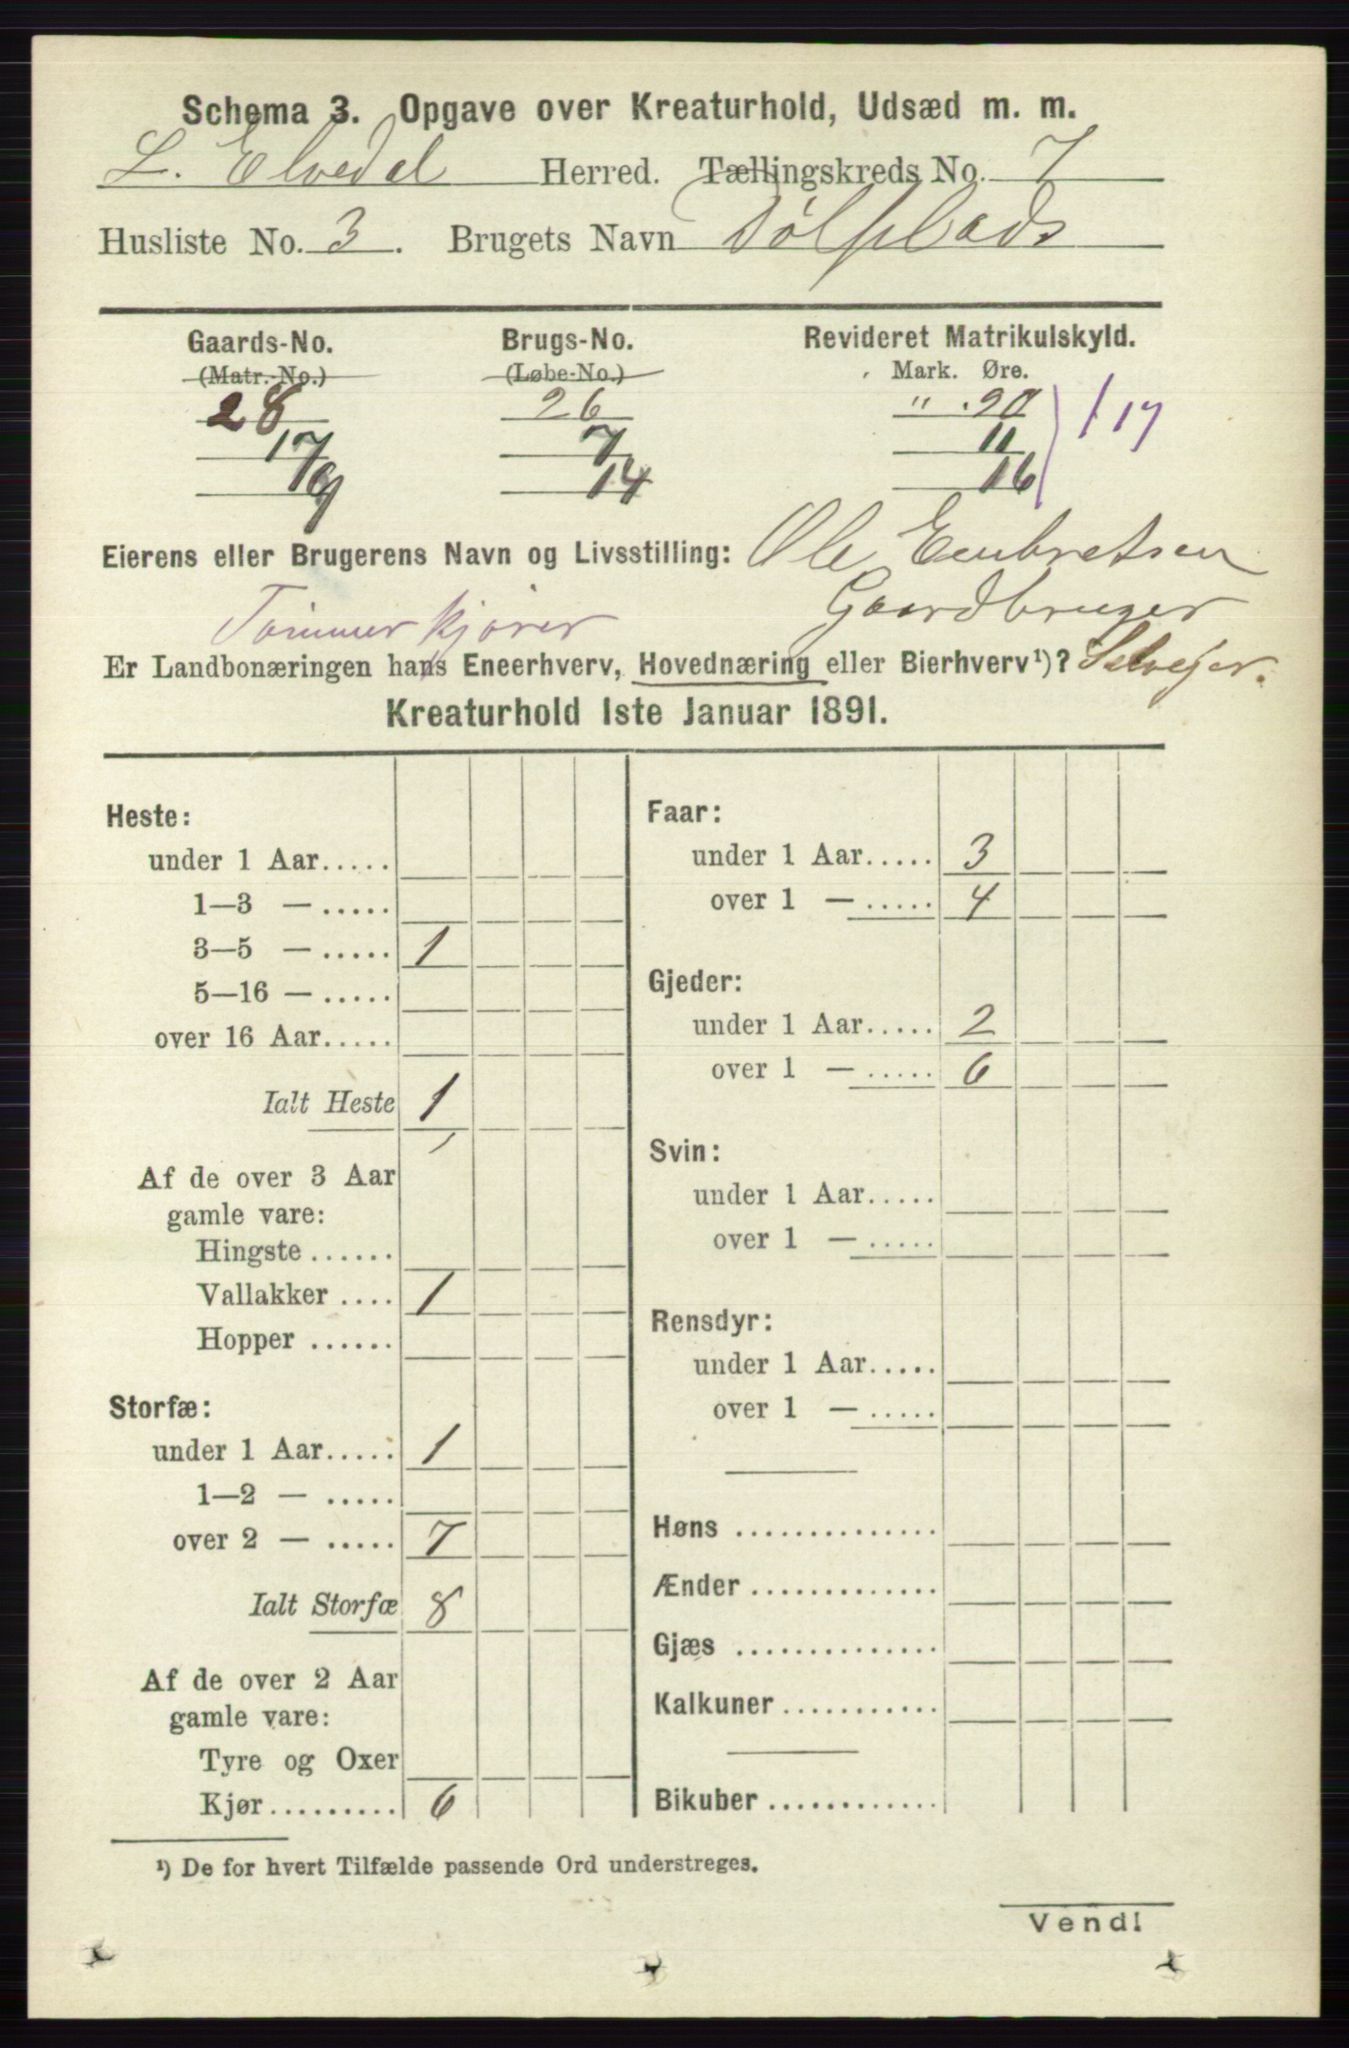 Schema 3. Opgave over Kreaturhold, Udsæd m. m.
L. Elvedal Herred. Tællingskreds No. 7
Husliste No. 3. Brugets Navn Dølplads
Gaards-No. Brugs-No. Revideret Matrikulskyld.
(Matr.-No.) (Løbe-No.) Mark. Øre.
28 26 " . 90
17 7 11 1 17
19 14 16
Eierens eller Brugerens Navn og Livsstilling: Ole Embretsen
Tømmerkjører Gaardbruger
Er Landbonæringen hans Eneerhverv, Hovednæring eller Bierhverv¹)? Selvejer.
Kreaturhold 1ste Januar 1891.
Heste:
under 1 Aar.....
1—3 — .....
3—5 — ..... 1
5—16 — .....
over 16 Aar.....
Ialt Heste 1
Af de over 3 Aar
gamle vare:
Hingste ......
Vallakker .... 1
Hopper ......
Storfæ:
under 1 Aar..... 1
1—2 — .....
over 2 — ..... 7
Ialt Storfæ 8
Af de over 2 Aar
gamle vare:
Tyre og Oxer
Kjør......... 6
Faar:
under 1 Aar..... 3
over 1 — ..... 4
Gjeder:
under 1 Aar..... 2
over 1 — ..... 6
Svin:
under 1 Aar.....
over 1 — .....
Rensdyr:
under 1 Aar.....
over 1 — .....
Høns ..............
Ænder .............
Gjæs ..............
Kalkuner ...........
Bikuber ............
¹) De for hvert Tilfælde passende Ord understreges.
Vend!